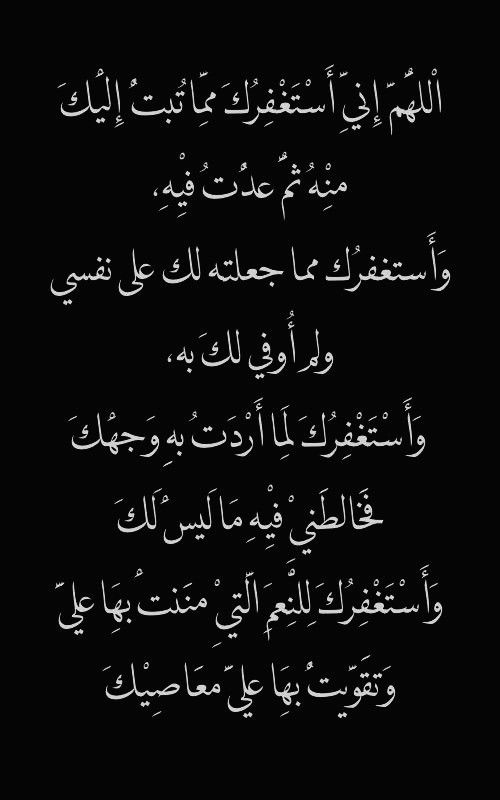 الْلهُمّ إِنيِّ أَسْتَغْفِرُكَ مِمّا تُبتُ إِليْكَ
منِْهُ ثمُّ عدُتُ فيْهِ،
وَأَستغفرُك مما جعلته لك على نفسي
ولم أُوفي لكَ به،
وَأَسْتَغْفِرُكَ لمَِا أَرْدَتُ بهِ وَجهْكَ
فَخَالطَنيْ فيِْهِ مَا لَيسْ لَكَ
وَأَسْتَغْفِرُكَ لِلنِّعَمِ الّتيِْ منَنتْ بهَِا عليّ
وَتقَوّيتُ بهَِا عليّ معَاصِيْكَ